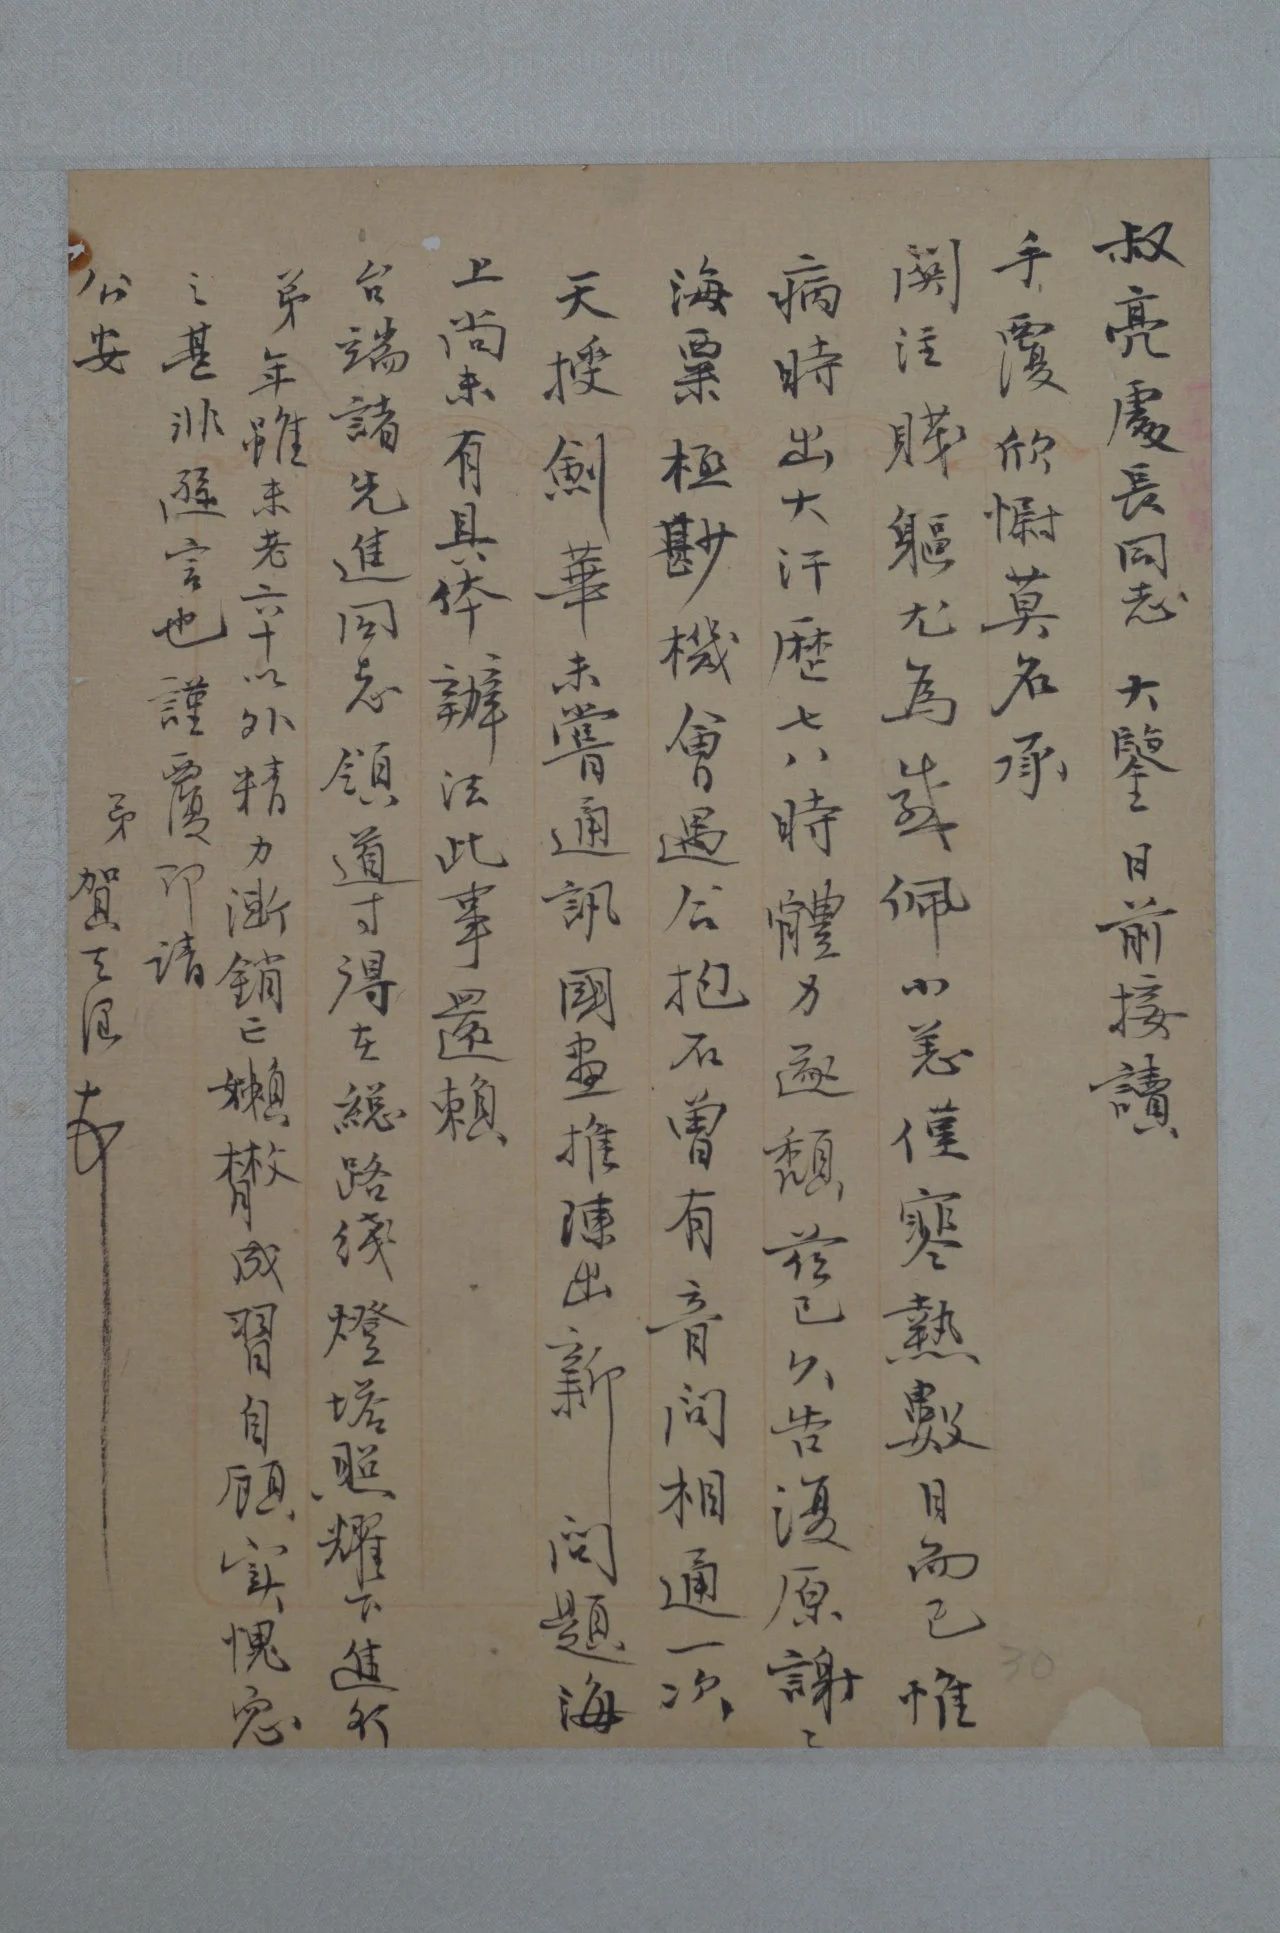 叔亮處長同志大鑒日前接讀
手覆欣慰莫名承
關注賤軀尤為感佩小恙僅寒熱數日而已惟
病時出大汗歷七八時體力遂頹茲已久告復原謝〻
海粟極尠機會遇公抱石曾有音問相通一次
天授劍華未嘗通訊國畫推陳出新問題海
上尚未有具体辦法此事還賴
台端諸先進同志領導才得在總路綫燈塔照耀下進行
弟年雖未老六十以外精力漸銷亡嬾散成習自顧實愧恧
之甚非遜言也謹覆即請
公安
弟賀天健
30